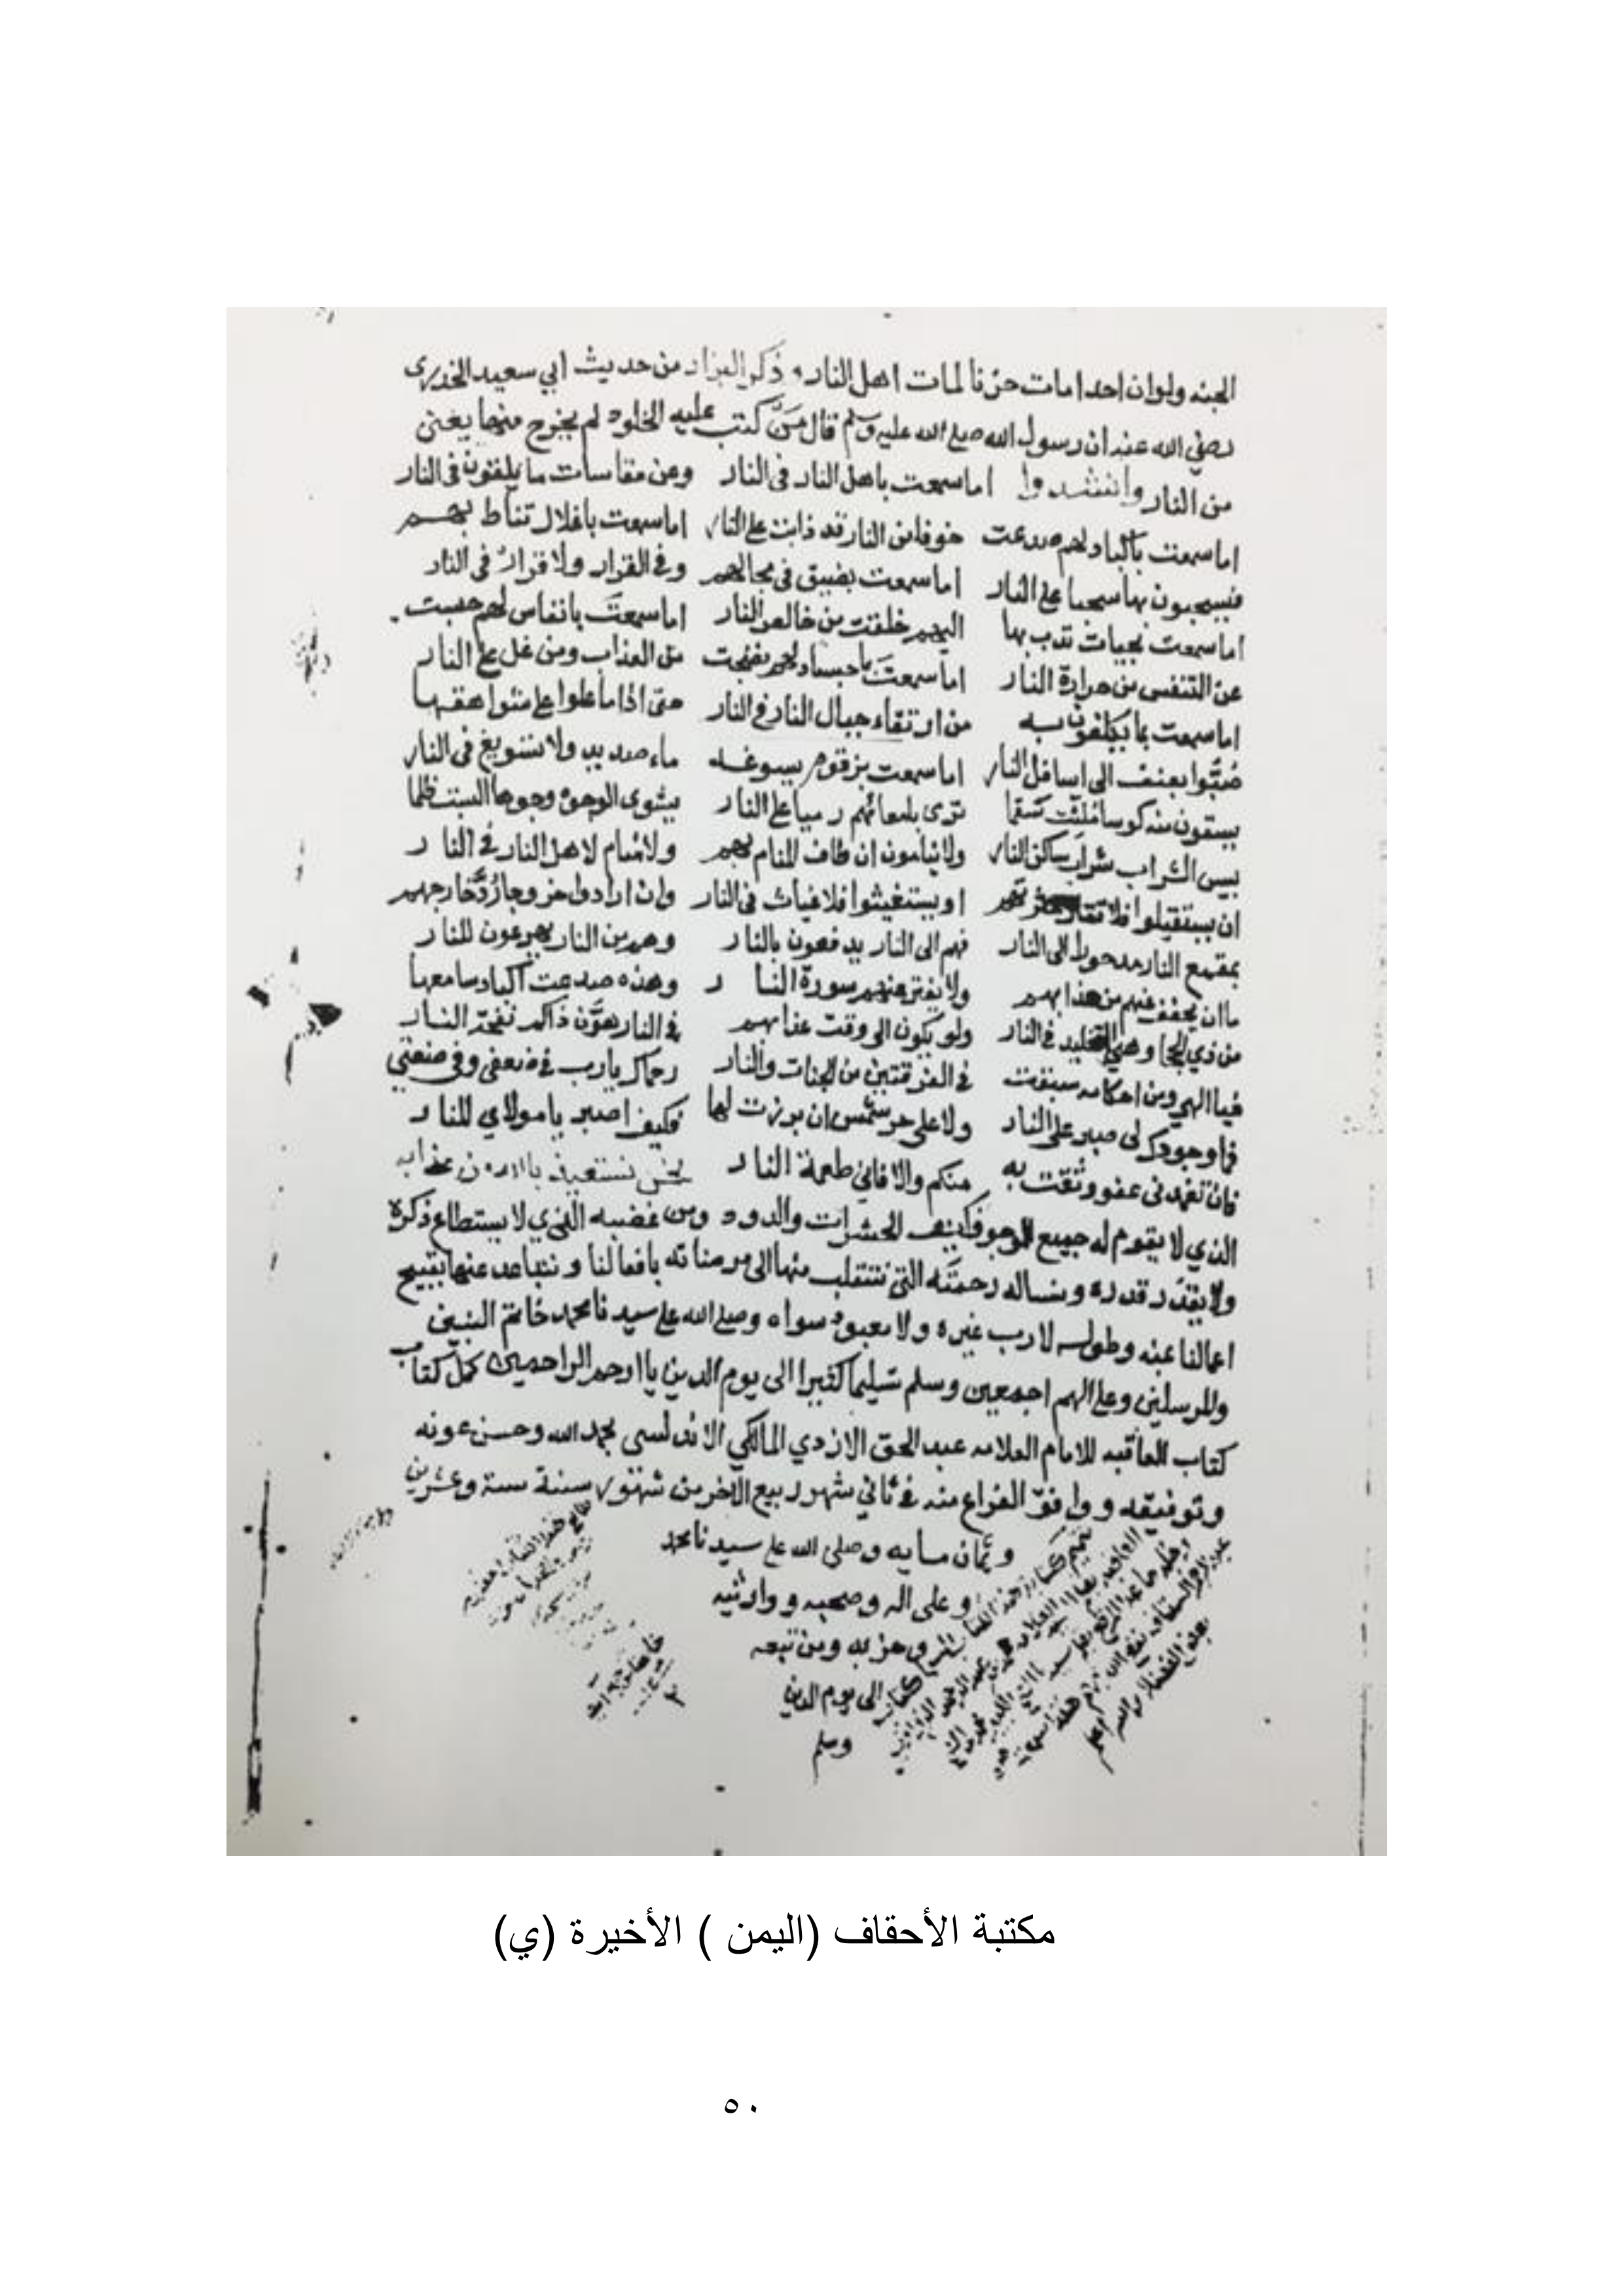 الجنه ولو ان احدا مات حزنا لمات اهل النار وذكر البزار من حديث ابي سعيد الخدرى
رضي الله عنه ان رسول الله صلى الله عليه وسلم قال من كتب عليه الخلود لم يخرج منها يعنى
من النار وانشدوا اما سمعت باهل النار فى النار وعن مقاسات ما يلقون فى النار
اما سمعت باكباد لهم صدعت خوفا من النار قد ذابت على النار اما سمعت باغلال تناط بهم
فيسحبون بها سحبا على النار اما سمعت بضيق فى مجالهم وفى القرار ولا قرار فى النار
اما سمعت بحيات تدب بها اليهم خلقت من خالص النار اما سمعت بانفاس لهم حبست
عن التنفس من حرارة النار اما سمعت باجساد لهم نضجت من العذاب ومن غل على النار
اما سمعت بما يكلفون به من ارتقاء جبال النار فى النار حتى اذا ما علوا على شواهقها
صبوا بعنف الى اسافل النار اما سمعت بزقوم يسوغه ماء صديد ولا تسويغ فى النار
يسقون منه كوسا ملئت سقما ترى بامعائهم رميا على النار يشوى الوجوه وجوها البست ظلما
بيس الشراب شراب ساكن النار ولا ينامون ان طاف المنام بهم ولا منام لاهل النار فى النار
ان يستقيلوا فلا تقال عثرتهم او يستغيثوا فلا غياث فى النار وان ارادوا خروجا رد خارجهم
بمقمع النار مدحورا الى النار فهم الى النار يدفعون بالنار وهم من النار يهرعون للنار
ما ان يخفف عنهم من عذابهم ولا يفتر عنهم سورة النار وهذه صدعت اكباد سامعها
من ذي الحجا وهي التخليد فى النار ولو يكون الى وقت عذابهم فى النار هون ذاكم نفحة النار
فيا الهي ومن احكامه سبقت فى الفرقتين من الجنات والنار رحماك يا رب فى ضعفى وفى ضعتي
فما وجودك لى صبر على النار ولا على حر شمس ان برزت لها فكيف اصبر يا مولاي للنار
فان تغمدنى عفو وثقت به منكم والا فاني طعمة النار نحن نستعيذ بالله من عذابه
الذي لا يقوم له جميع الوجود فكيف الحشرات والدود ومن غضبه الذي لا يستطاع ذكره
ولا يقدر قدره ونساله رحمته التى ننتقلب منها الى مرضاته بافعالنا ونتباعد عنها بقبيح
اعمالنا عنه وطوله لا رب غيره ولا معبود سواه وصلى الله على سيدنا محمد خاتم النبيين
والمرسلين وعلى الهم اجمعين وسلم تسليما كثيرا الى يوم الدين يا ارحم الراحمين كمل كتاب
كتاب العاقبه للامام العلامه عبد الحق الازدي المالكي الاندلسي بحمد الله وحسن عونه
وتوفيقه ووافق الفراغ منه فى ثاني شهر ربيع الآخر من شهور سنة ستة وعشرين
وثمان مايه وصلى الله على سيدنا محمد
وعلى اله وصحبه ووارثيه
وحزبه ومن تبعه
الى يوم الدين
وسلم
مكتبة الأحقاف (اليمن ) الأخيرة (ي)
٥٠